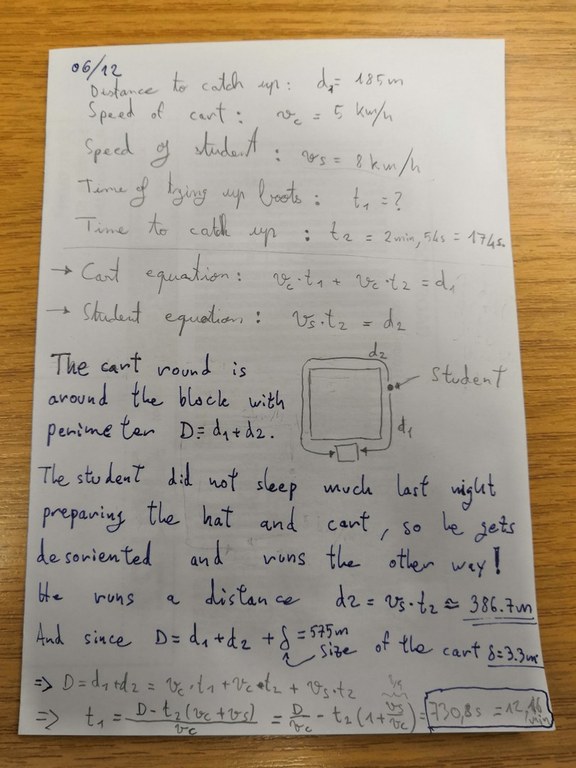 06/12
Distance to catch up: d1 = 185m
Speed of cart: vc = 5 km/h
Speed of student: vs = 8 km/h
Time of tying up boots: t1 = ?
Time to catch up: t2 = 2min, 54s = 174s
→ Cart equation: vc·t1 + vc·t2 = d1
→ Student equation: vs·t2 = d2
The cart round is
around the block with
perimeter D = d1+d2.
d2
Student
d1
The student did not sleep much last night
preparing the hat and cart, so he gets
desoriented and runs the other way!
He runs a distance d2 = vs·t2 ≈ 386.7m
And since D = d1+d2 + δ = 575m
size of the cart δ=3.3m
⇒ D = d1+d2 = vc·t1 + vc·t2 + vs·t2
⇒ t1 = (D - t2(vc + vs))/vc = D/vc - t2(1 + vs/vc) = 730,8s = min